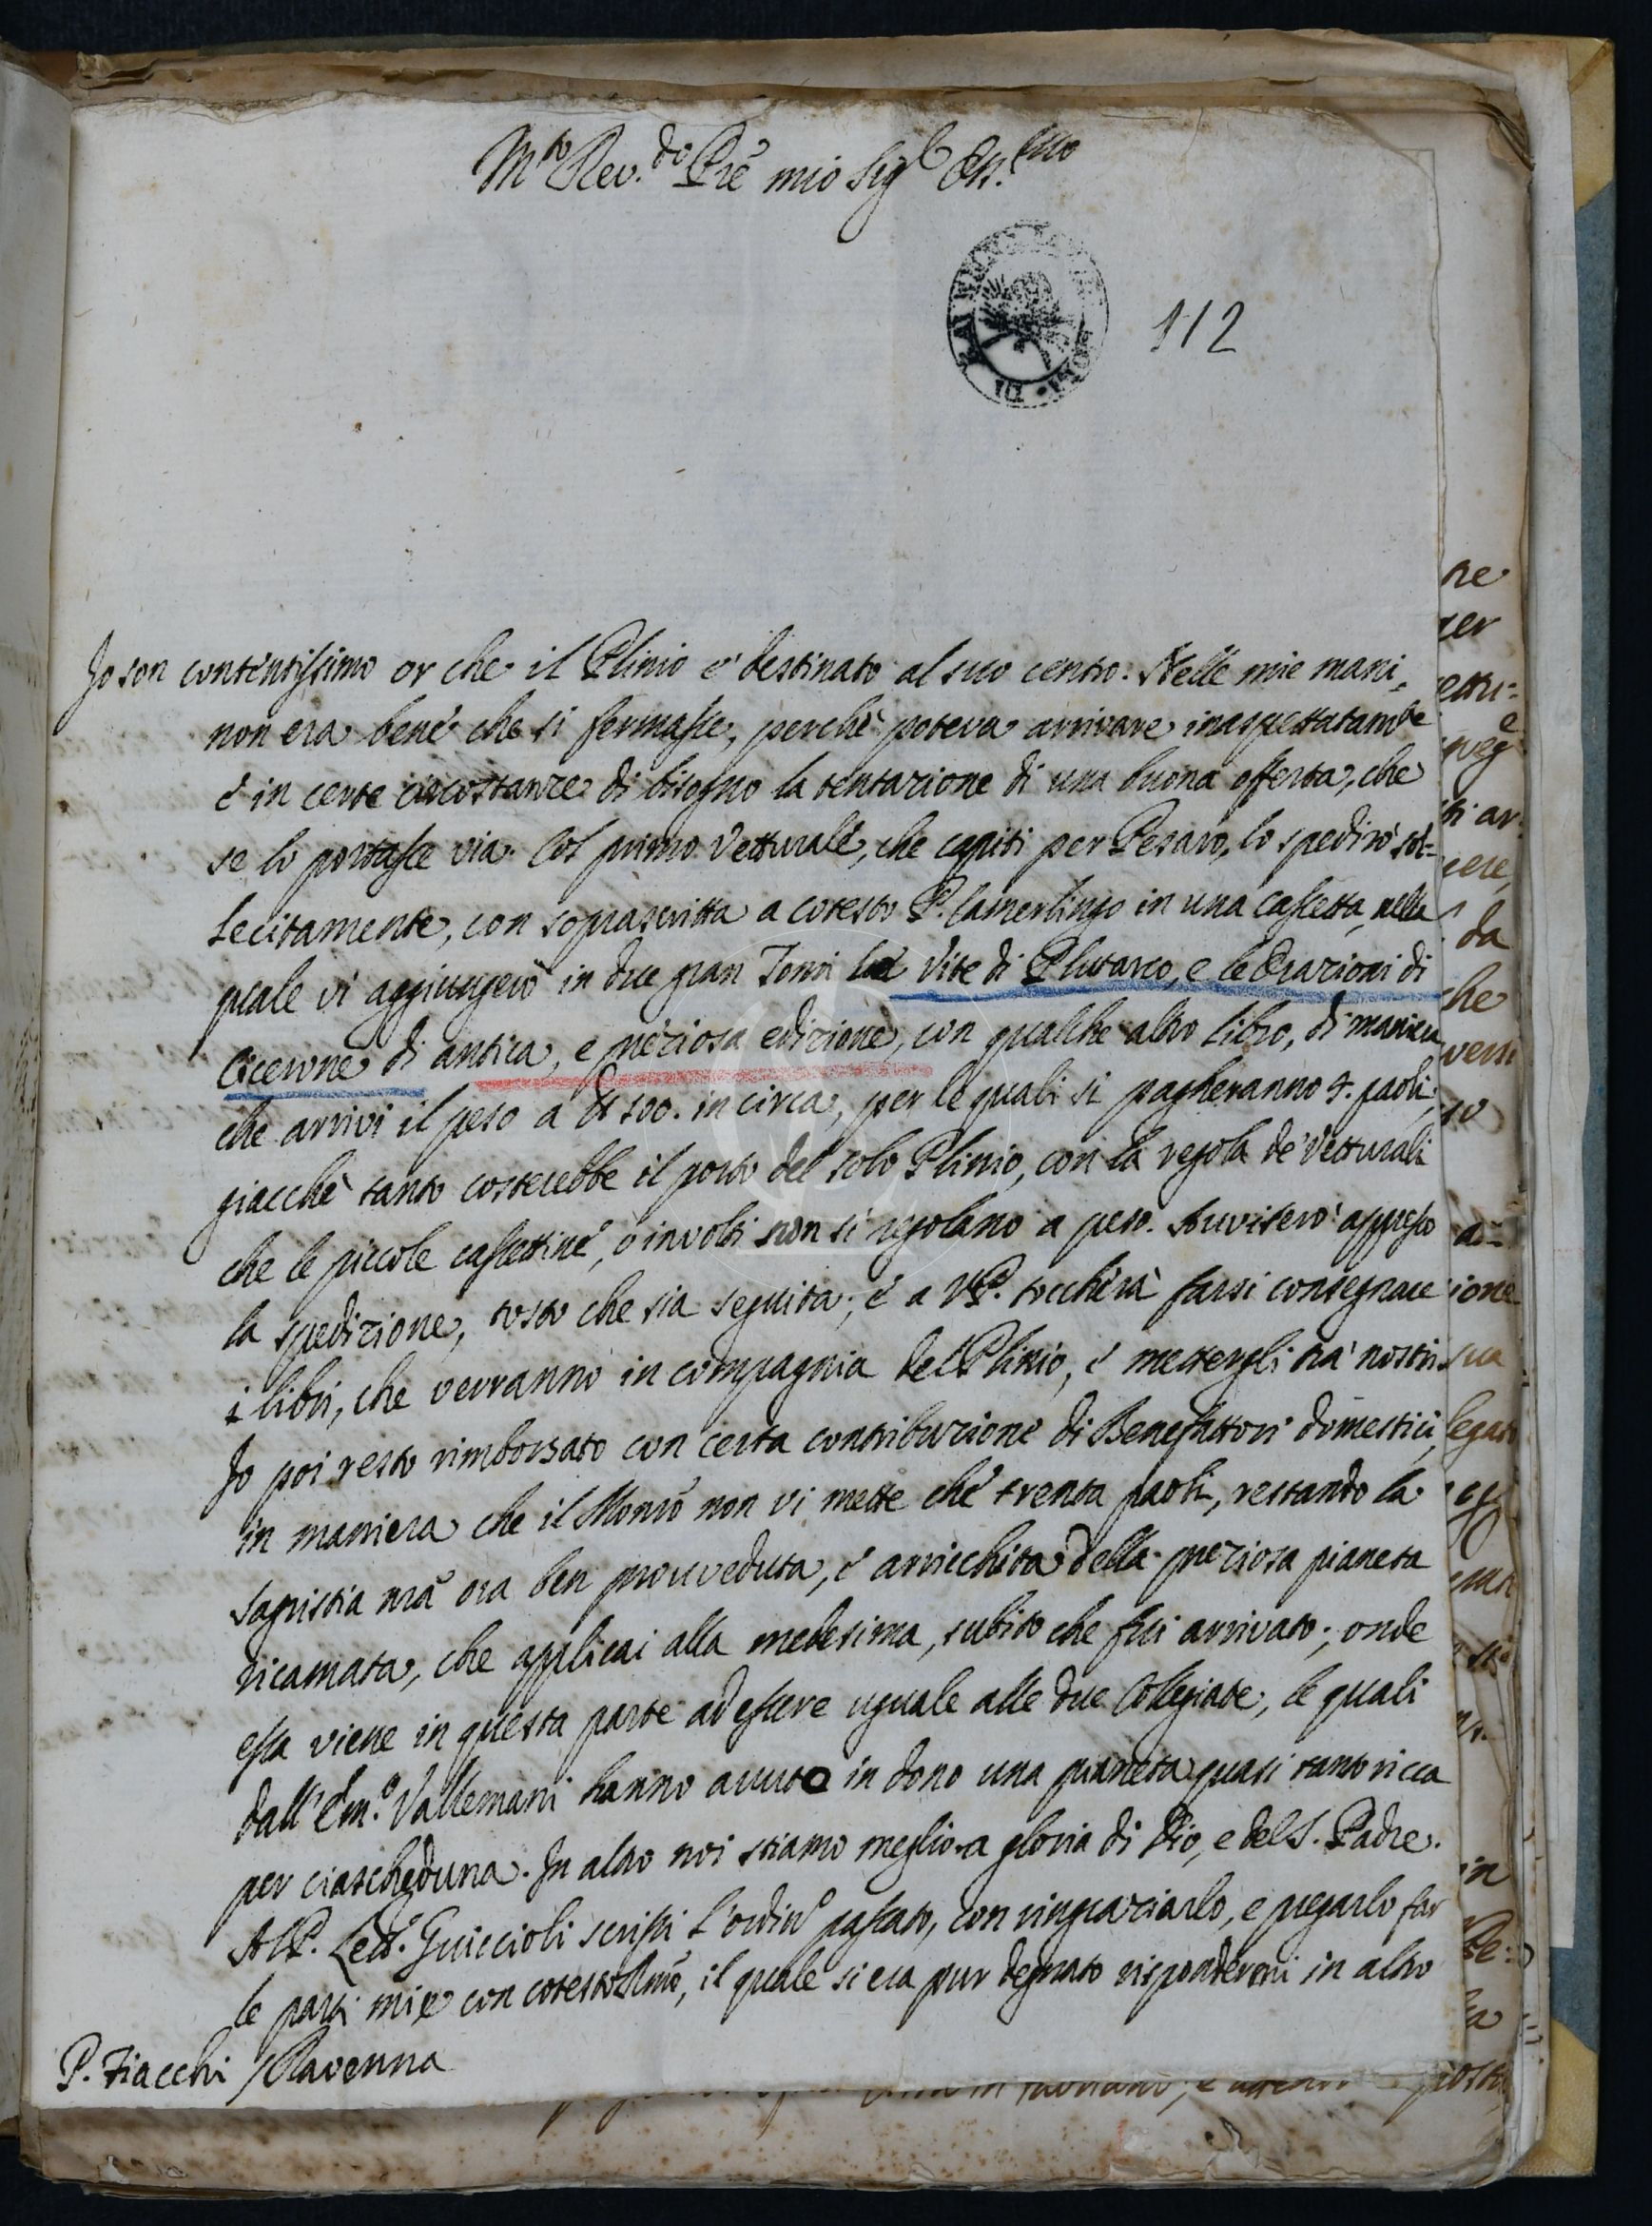 M.to Rev.do Pre mio Sig.e Oss.mo
112
Io son contentissimo or che il Plinio e' destinato al suo centro. Nelle mie mani,
non era bene che si fermasse, perchè poteva arrivare inaspettatam.te
e in certe circostanze di bisogno la tentazione di una buona offerta, che
se lo portasse via. Col primo Vetturale, che capiti per Pesaro, lo spedirò sol=
lecitamente, con soprascritta a cotesto P. Camerlingo in una cassetta, nella
quale vi aggiungerò in due gran Tomi le Vite di Plutarco, e le Orazioni di
Cicerone di antica, e preziosa edizione, con qualche altro libro, di maniera
che arrivi il peso a 100. in circa, per le quali si pagheranno paoli,
giacchè tanto costerebbe il porto del solo Plinio, con la regola de' Vetturali
che le piccole cassettine, o involti non si regolano a peso. Avviserò appresso
la spedizione, tosto che sia seguita; e a V.P. toccherà farsi consegnare
i libri, che verranno in compagnia del Plinio, e mettergli tra' nostri
Io poi resto rimborsato con certa contribuzione di Benefattori domestici,
in maniera che il Monrò non vi mette che trenta paoli, restando la
sagristia ora ben provveduta, e arricchita della preziosa pianeta
ricamata, che applicai alla medesima, subito che fui arrivato; onde
essa viene in questa parte ad essere uguale alle due Collegiate, le quali
dall'Em.o Vallemani hanno avuto in dono una pianeta quasi tanto ricca
per ciascheduna. In altro noi stiamo meglio a gloria di Dio, e del S. Padre.
Al P. Lett. Guiccioli scrissi l'ordin.o passato, con ringraziarlo, e pregarlo far
le parti mie con cotesto Rmo, il quale si era pur degnato rispondermi in altro
P. Fiacchi / Ravenna